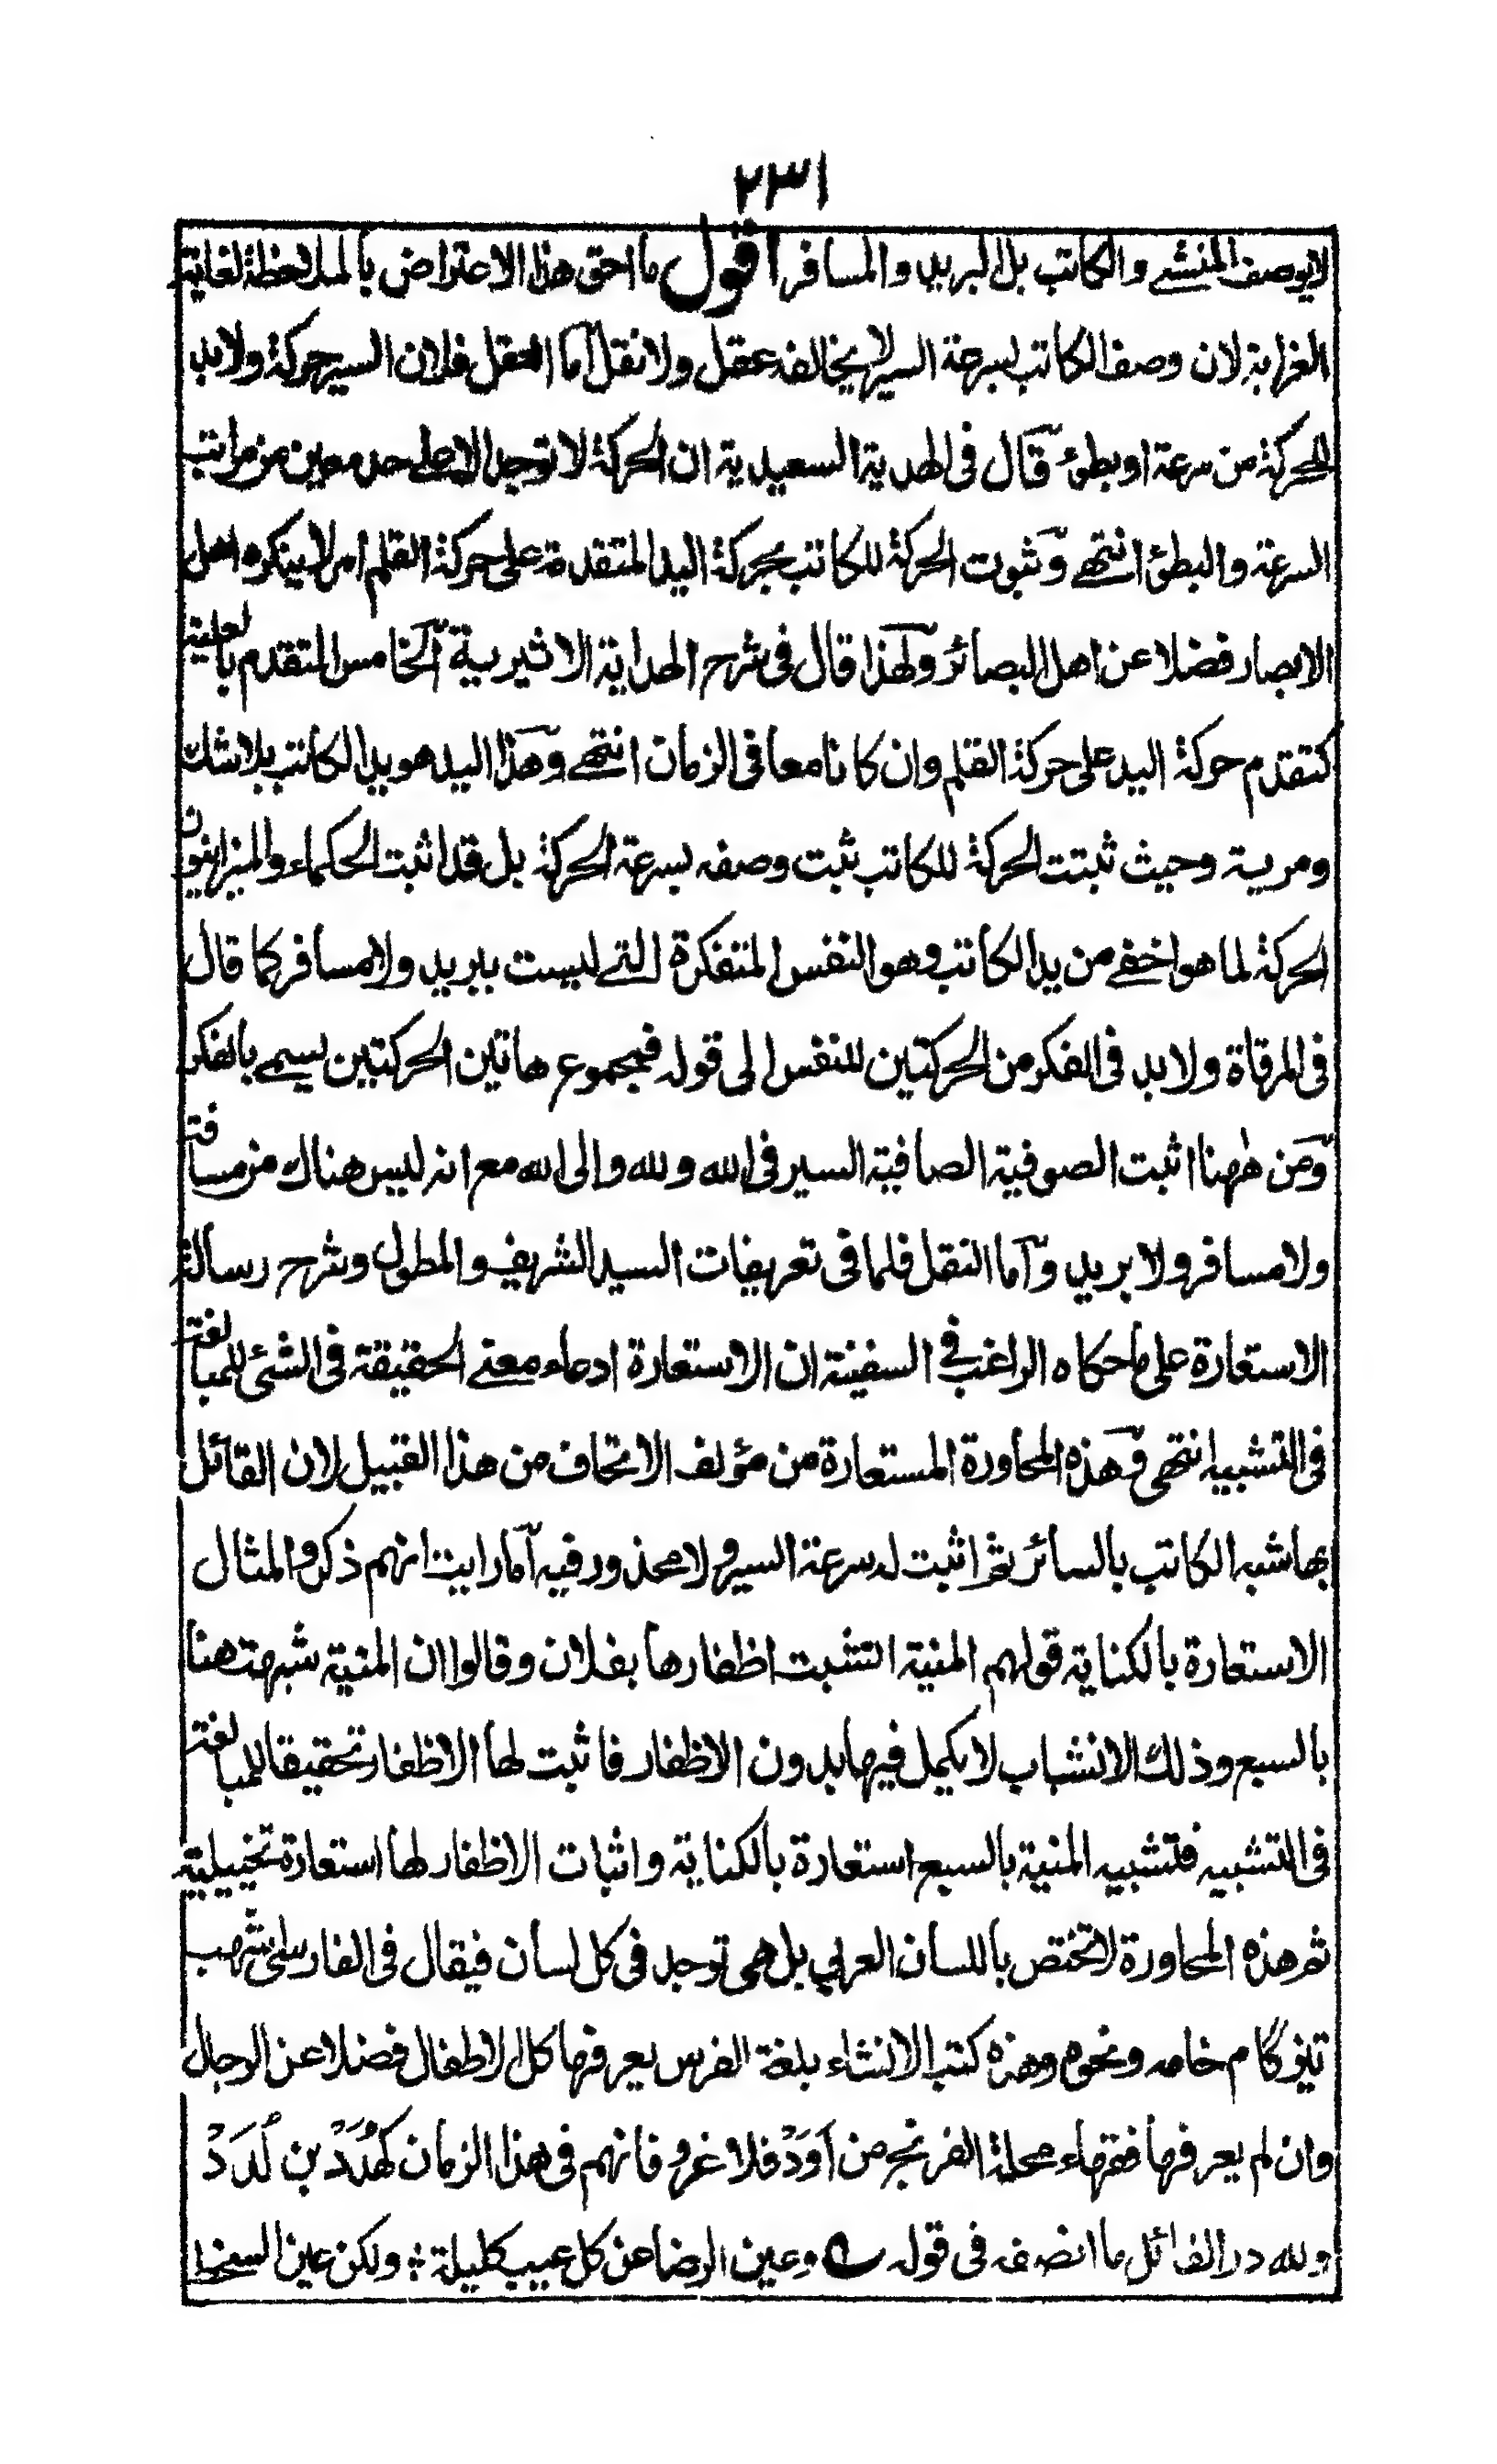 ٢٣١
لا يوصف المنشے والكاتب بل البريد والمسافر اقول ما احق هذا الاعتراض بالملاحظة لغاية
الغرابة لان وصف الكاتب بسرعة السير لا يخالفه عقل ولا نقل اما العقل فلان السير حركة ولا بد
للحركة من سرعة او بطوء قال فى الهدية السعيدية ان الحركة لا توجد الا على حد معين من مراتب
السرعة والبطؤ انتهے وثبوت الحركة للكاتب بحركة اليد المتقدمة على حركة القلم امر لا ينكره اهل
الابصار فضلا عن اهل البصائر ولهذا قال فى شرح الهداية الاثيرية الخامس المتقدم بالعلية
كتقدم حركة اليد على حركة القلم وان كانا معا فى الزمان انتهے وهذا اليد هو يد الكاتب بلا شك
ومرية وحيث ثبتت الحركة للكاتب ثبت وصفه بسرعة الحركة بل قد اثبت الحكماء والميزانيون
الحركة لما هو اخفے من يد الكاتب وهو النفس المتفكرة التے ليست ببريد ولا مسافر كما قال
فى المرقاة ولا بد فى الفكر من الحركتين للنفس الى قوله فمجموع هاتين الحركتين يسمے بالفكر
ومن ههنا اثبت الصوفية الصافية السير فى الله ولله والى الله مع انه ليس هناك من مسافة
ولا مسافر ولا بريد واما النقل فلما فى تعريفات السيد الشريف والمطول وشرح رسالة
الاستعارة على ما حكاه الراغب فے السفينة ان الاستعارة ادعاء معنے الحقيقة فى الشئ للمبالغة
فى التشبيه انتهى وهذه المحاورة المستعارة من مؤلف الاتحاف من هذا القبيل لان القائل
بها شبه الكاتب بالسائر ثم اثبت له سرعة السير ولا محذور فيه اما رايت انهم ذكروا لمثال
الاستعارة بالكناية قولهم المنية انتشبت اظفارها بفلان وقالوا ان المنية شبهت هنا
بالسبع وذلك الانتشاب لا يكمل فيها بدون الاظفار فاثبت لها الاظفار تحقيقا للمبالغة
فى التشبيه فتشبيه المنية بالسبع استعارة بالكناية واثبات الاظفار لها استعارة تخييلية
ثم هذه المحاورة لا تختص باللسان العربي بل هى توجد فى كل لسان فيقال فى الفارسى شهب
تيزگام خامه ونحوه وهذه كتب الانشاء بلغة الفرس يعرفها كل الاطفال فضلا عن الرجال
وان لم يعرفها فقهاء محلة الفرنج من اَوَدْ فلا غرو فانهم فى هذا الزمان كهُدَدْ بن لُدَدْ
ولله در القائل ما انصفه فى قوله وعين الرضا عن كل عيب كليلة ؛ ولكن عين السخط